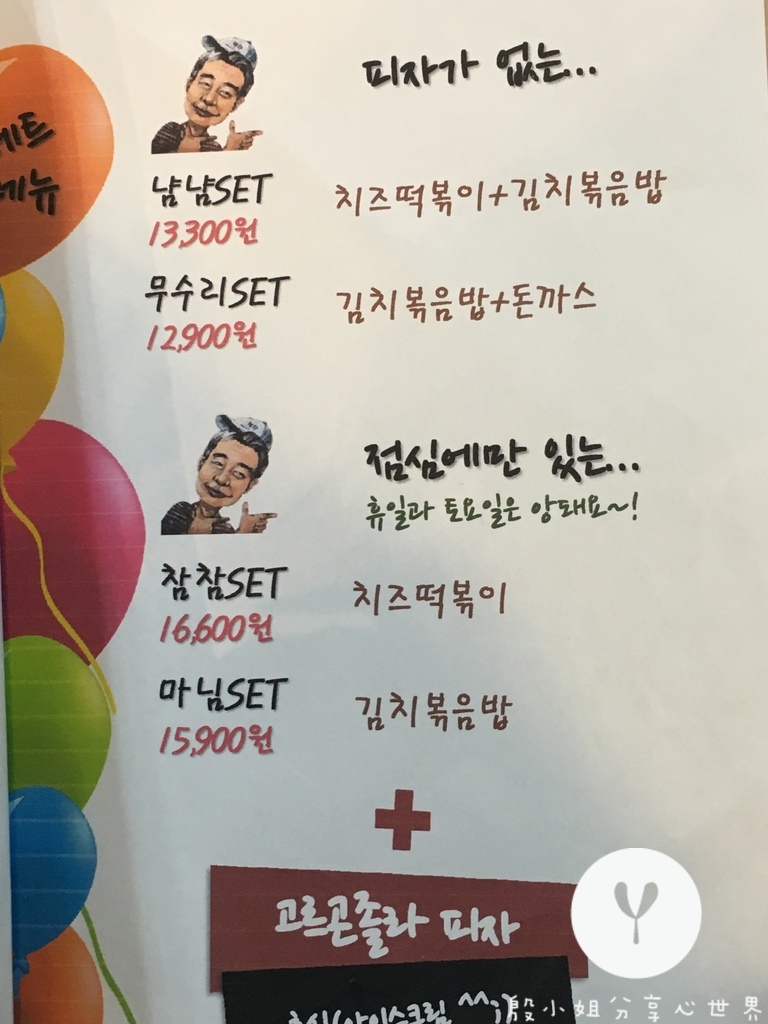 피자가 없는...
세트
메뉴
냠냠SET
치즈떡볶이+김치볶음밥
13,300원
무수리SET
김치볶음밥+돈까스
12,900원
점심에만 있는...
휴일과 토요일은 앙돼요~!
참참SET
치즈떡볶이
16,600원
마님SET
김치볶음밥
15,900원
+
고르곤졸라 피자
^^;)
殷小姐分享心世界